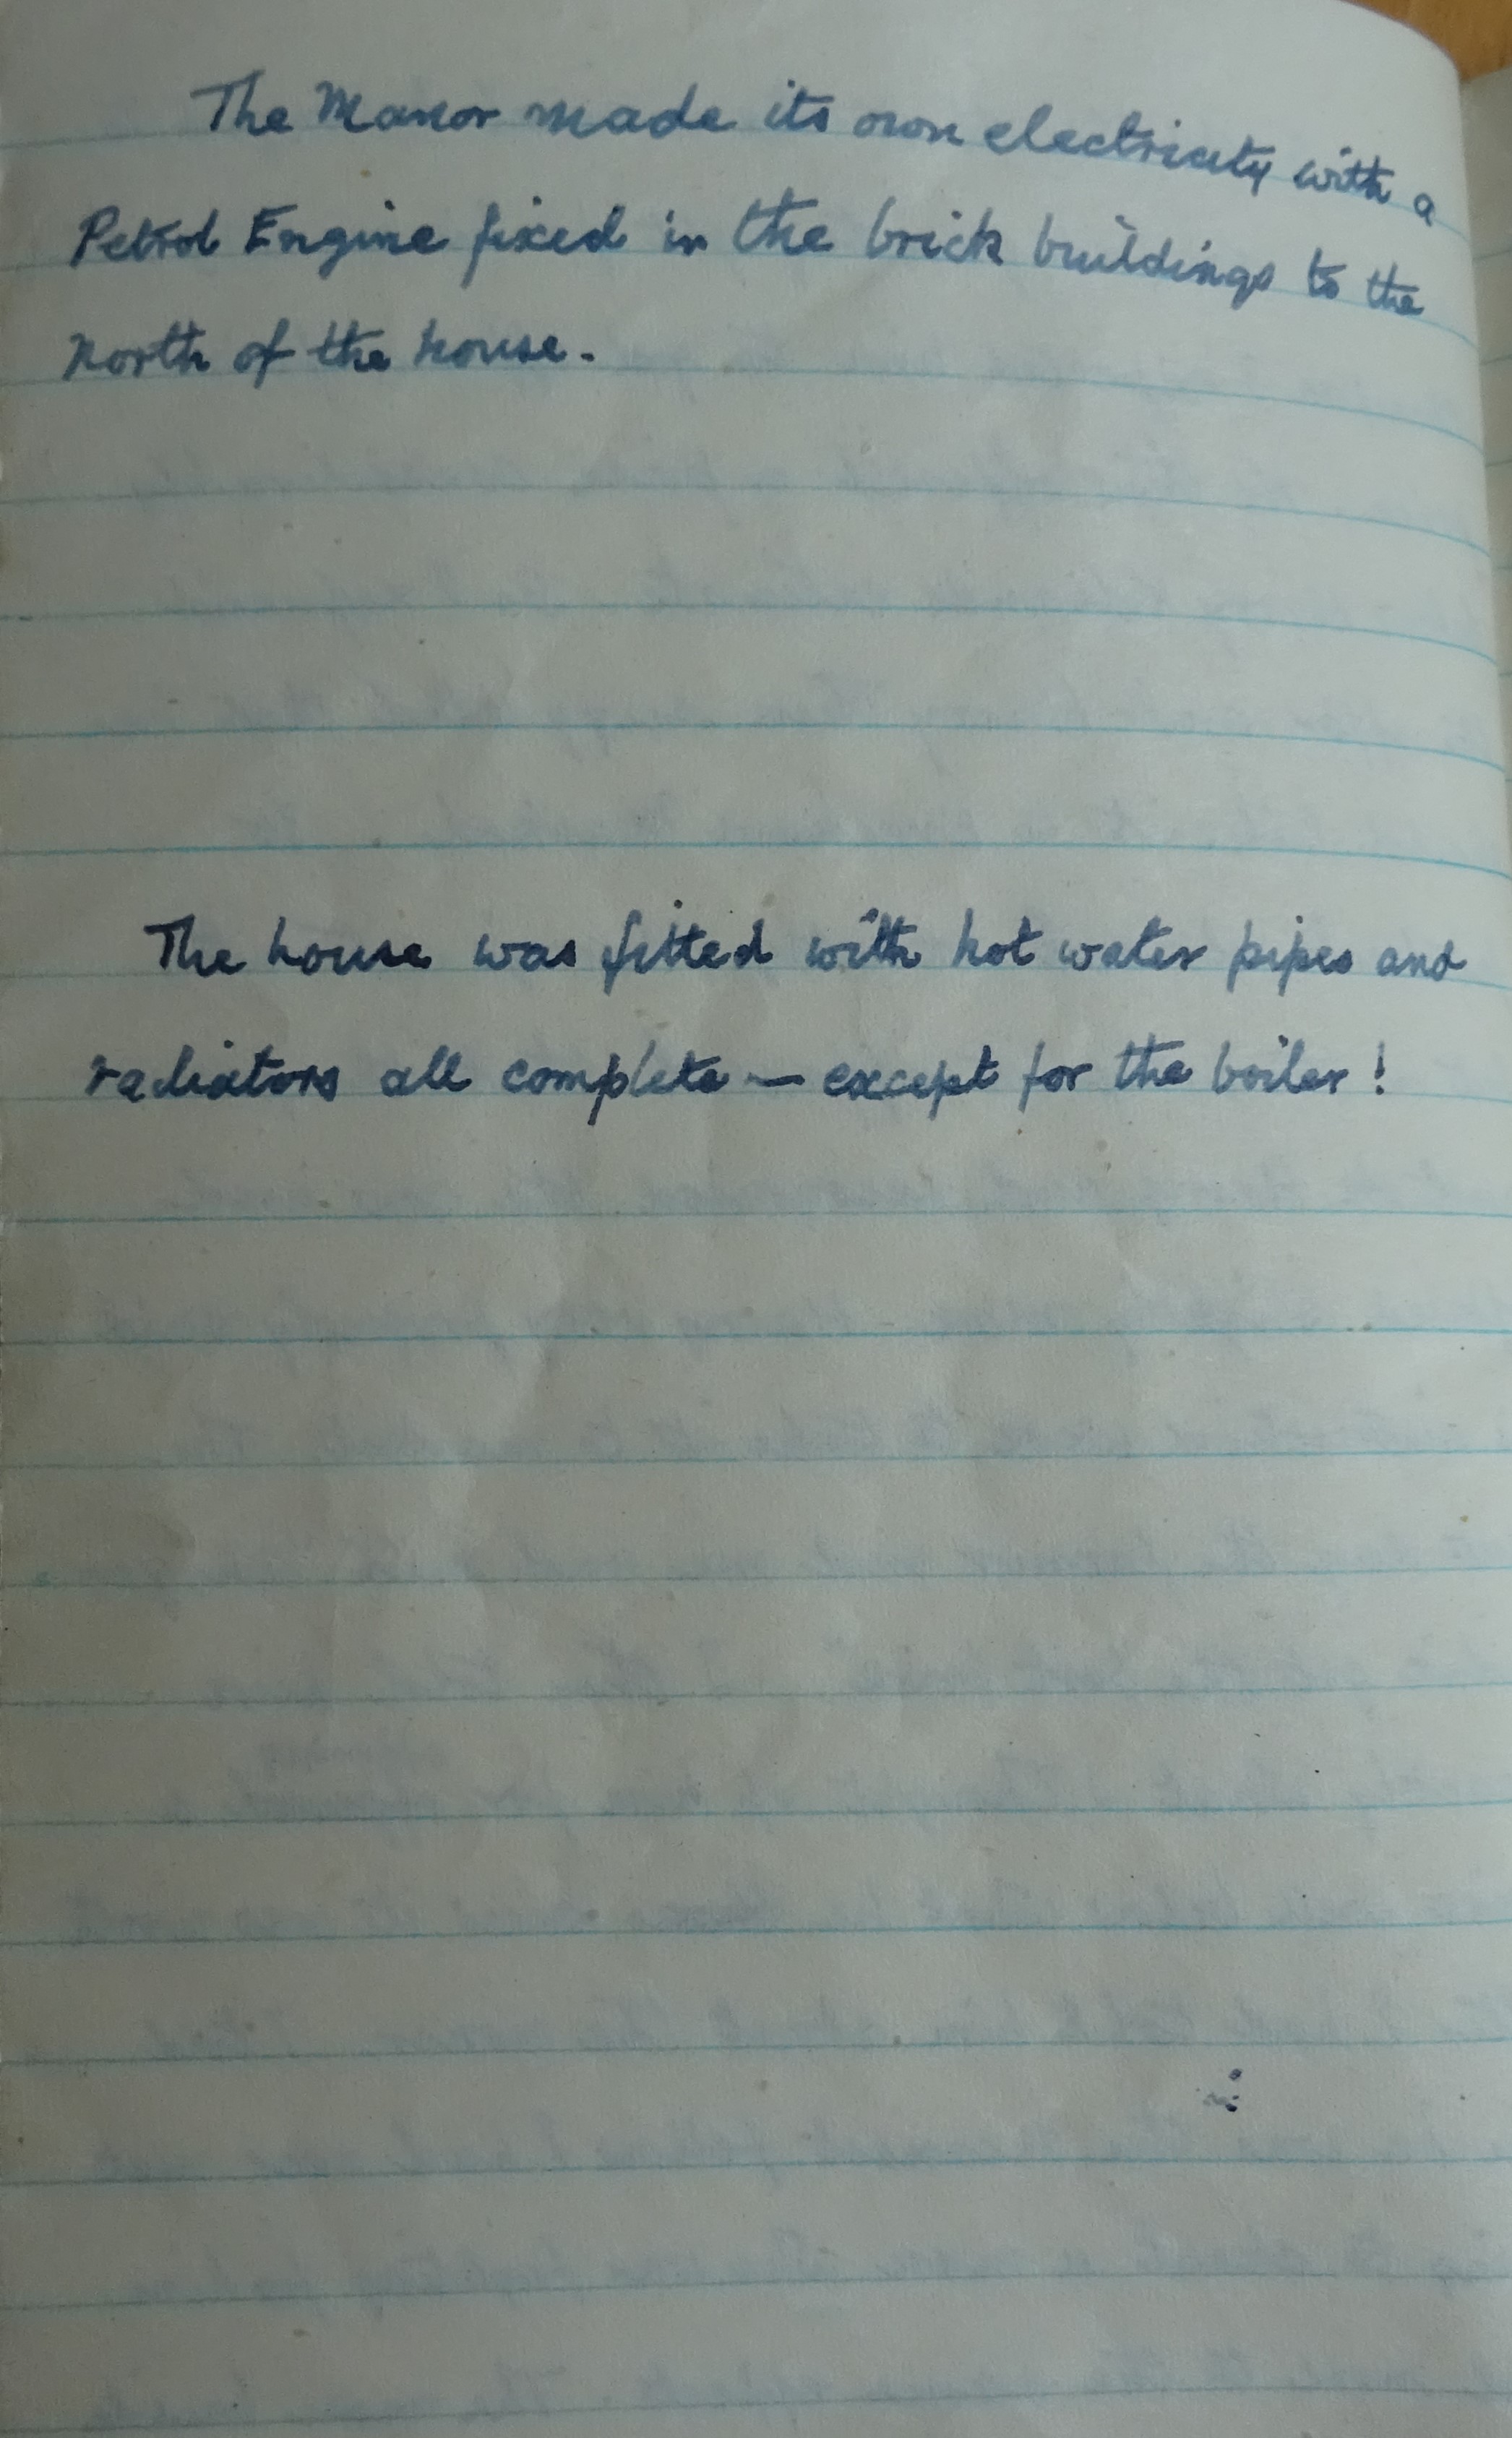 The Manor made its own electricity with a
Petrol Engine fixed in the brick buildings to the
North of the house.
The house was fitted with hot water pipes and
radiators all complete — except for the boiler!